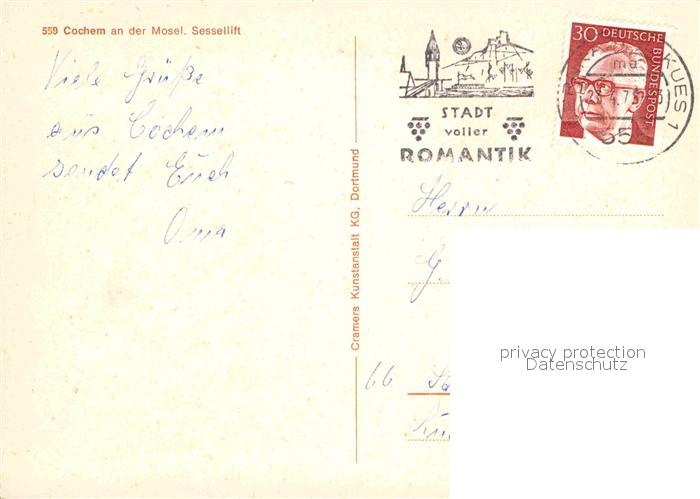 559 Cochem an der Mosel. Sessellift
Viele Grüße
aus Cochem
sendet Euch
Oma
Cramers Kunstanstalt KG, Dortmund
STADT
voller
ROMANTIK
30 DEUTSCHE
BUNDESPOST
KUES 1
ma
Herrn
G.
66
privacy protection
Datenschutz